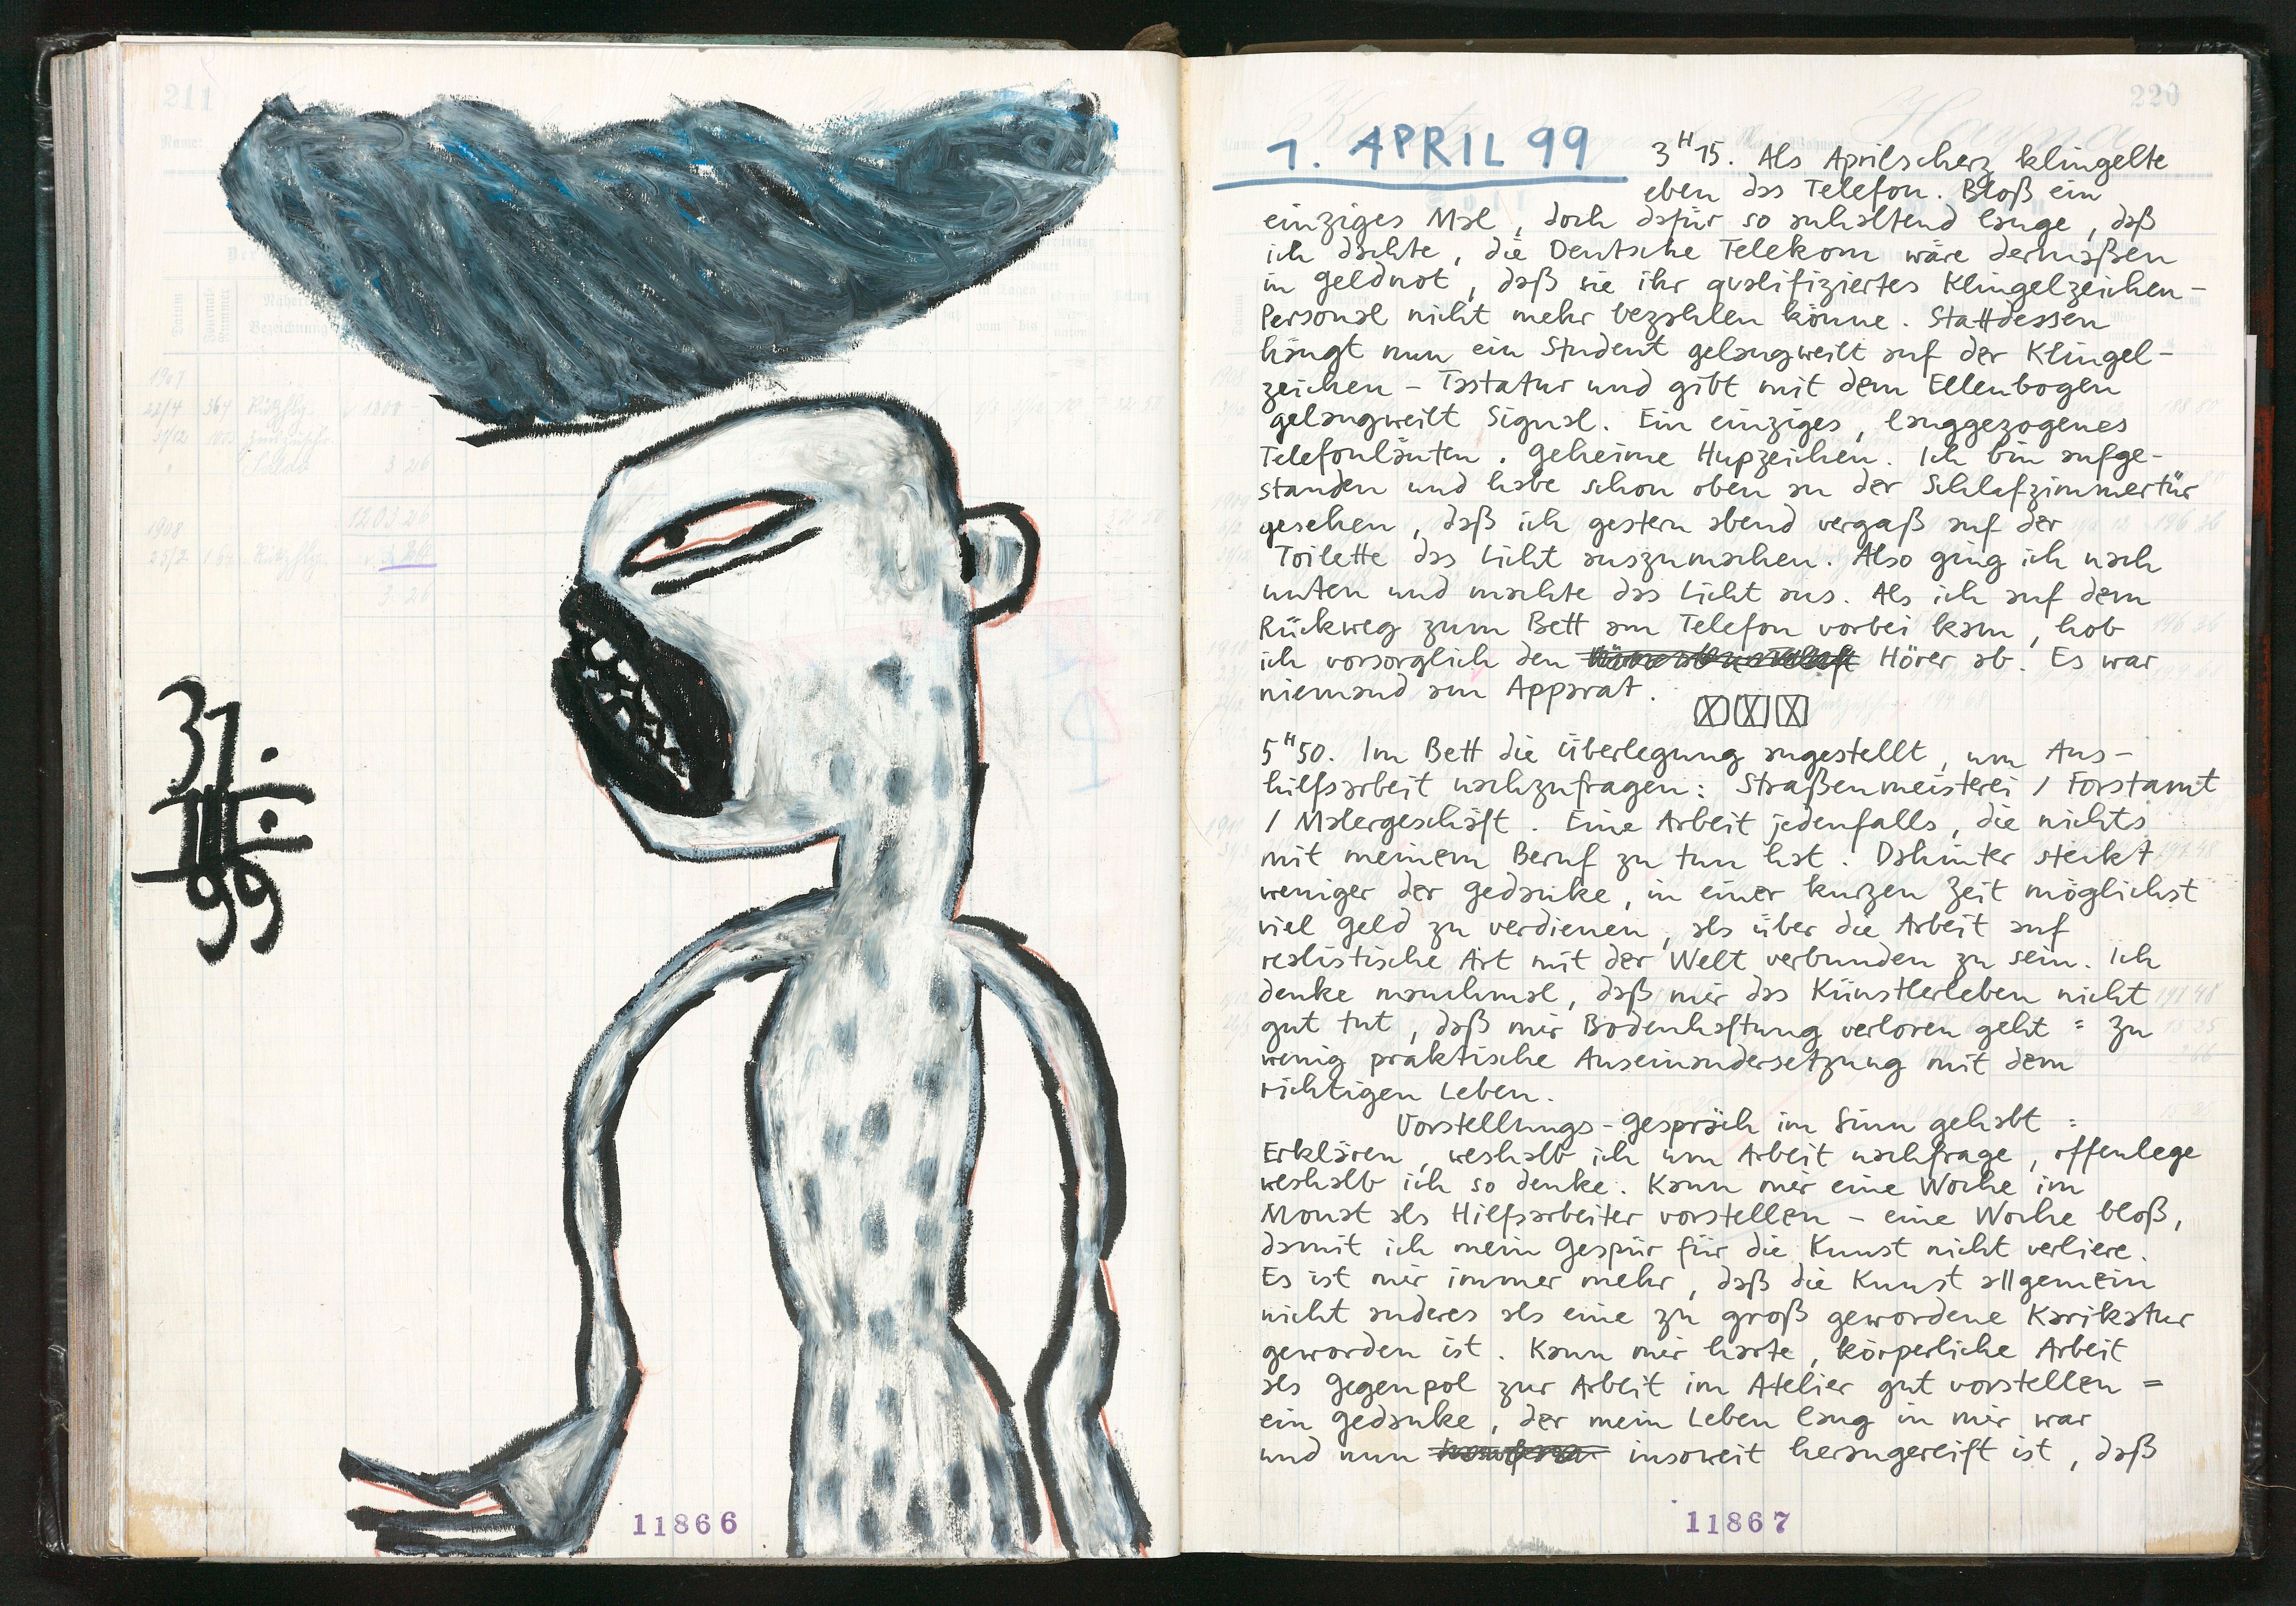 211
31.
III.
99
11866
220
1. APRIL 99
3H15. Als Aprilscherz klingelte
eben das Telefon. Bloß ein
einziges Mal, doch dafür so anhaltend lange, daß
ich dachte, die Deutsche Telekom wäre dermaßen
in Geldnot, daß sie ihr qualifiziertes Klingelzeichen-
Personal nicht mehr bezahlen könne. Stattdessen
hängt nun ein Student gelangweilt auf der Klingel-
zeichen - Tastatur und gibt mit dem Ellenbogen
gelangweilt Signal. Ein einziges, langgezogenes
Telefonläuten. Geheime Hupzeichen. Ich bin aufge-
standen und habe schon oben an der Schlafzimmertür
gesehen, daß ich gestern abend vergaß auf der
Toilette das Licht auszumachen. Also ging ich nach
unten und machte das Licht aus. Als ich auf dem
Rückweg zum Bett am Telefon vorbei kam, hob
ich vorsorglich den Hörer ab. Es war
niemand am Apparat.
5H50. Im Bett die Überlegung angestellt, um Aus-
hilfsarbeit nachzufragen: Straßenmeisterei / Forstamt
/ Malergeschäft. Eine Arbeit jedenfalls, die nichts
mit meinem Beruf zu tun hat. Dahinter steckt
weniger der Gedanke, in einer kurzen Zeit möglichst
viel Geld zu verdienen, als über die Arbeit auf
realistische Art mit der Welt verbunden zu sein. Ich
denke manchmal, daß mir das Künstlerleben nicht
gut tut, daß mir Bodenhaftung verloren geht = zu
wenig praktische Auseinandersetzung mit dem
richtigen Leben.
Vorstellungs-Gespräch im Sinn gehabt =
Erklären, weshalb ich um Arbeit nachfrage, offenlege
weshalb ich so denke. Kann mir eine Woche im
Monat als Hilfsarbeiter vorstellen - eine Woche bloß,
damit ich mein Gespür für die Kunst nicht verliere.
Es ist mir immer mehr, daß die Kunst allgemein
nicht anderes als eine zu groß gewordene Karikatur
geworden ist. Kann mir harte, körperliche Arbeit
als Gegenpol zur Arbeit im Atelier gut vorstellen =
ein Gedanke, der mein Leben lang in mir war
und nun insoweit herangereift ist, daß
11867